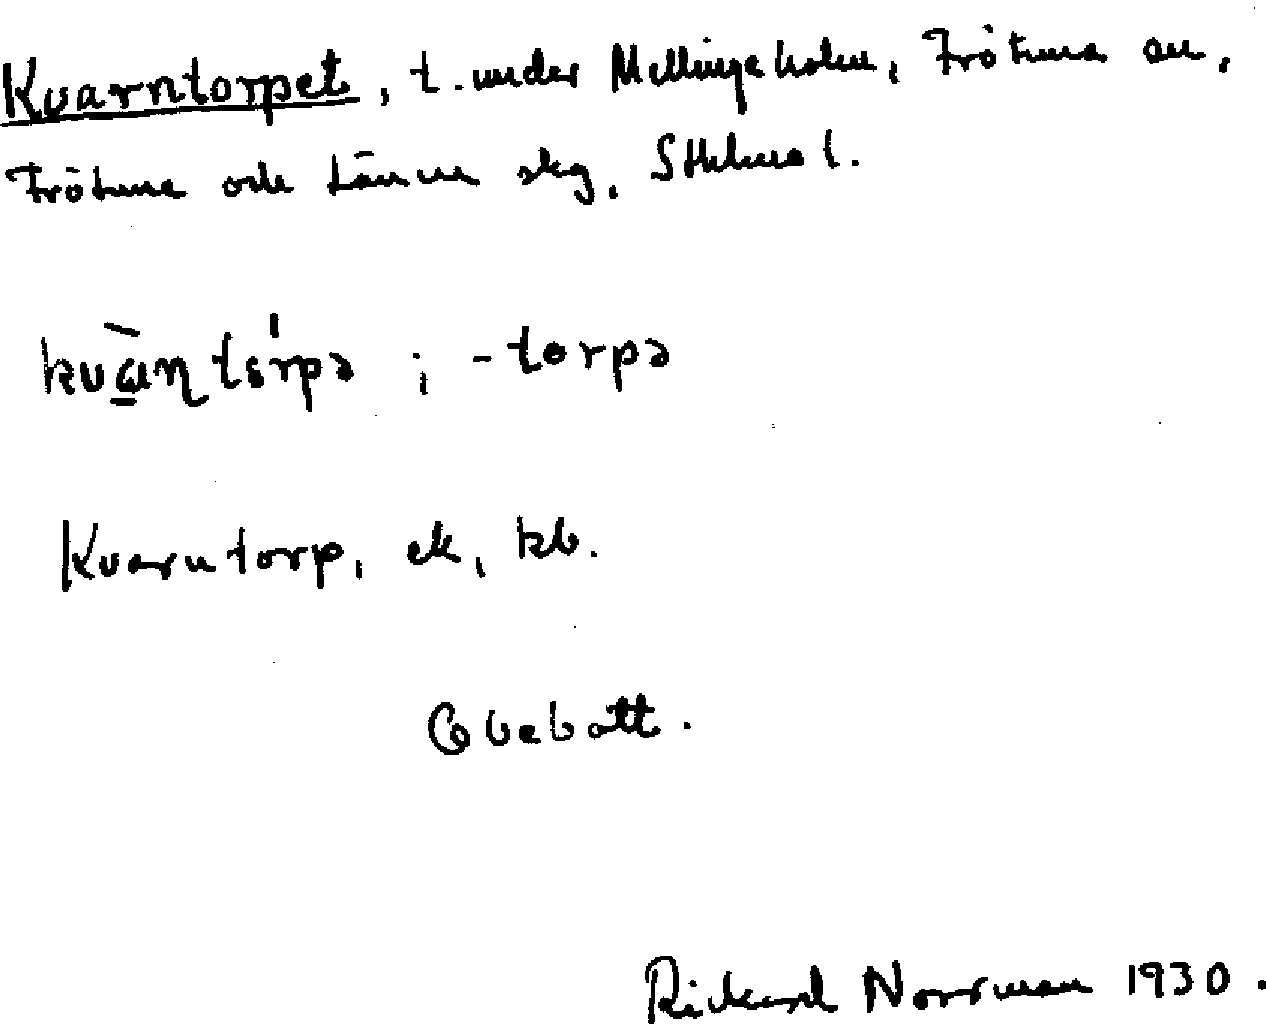 Kvarntorpet, t. under Mellingeholm, Frötuna sn,
Frötuna och Länna skg, Sthlms l.
kvɑ̀ṇtórpə ; -torpə
Kvarntorp, ek, kb.
Obebott.
Rickard Norrman 1930.